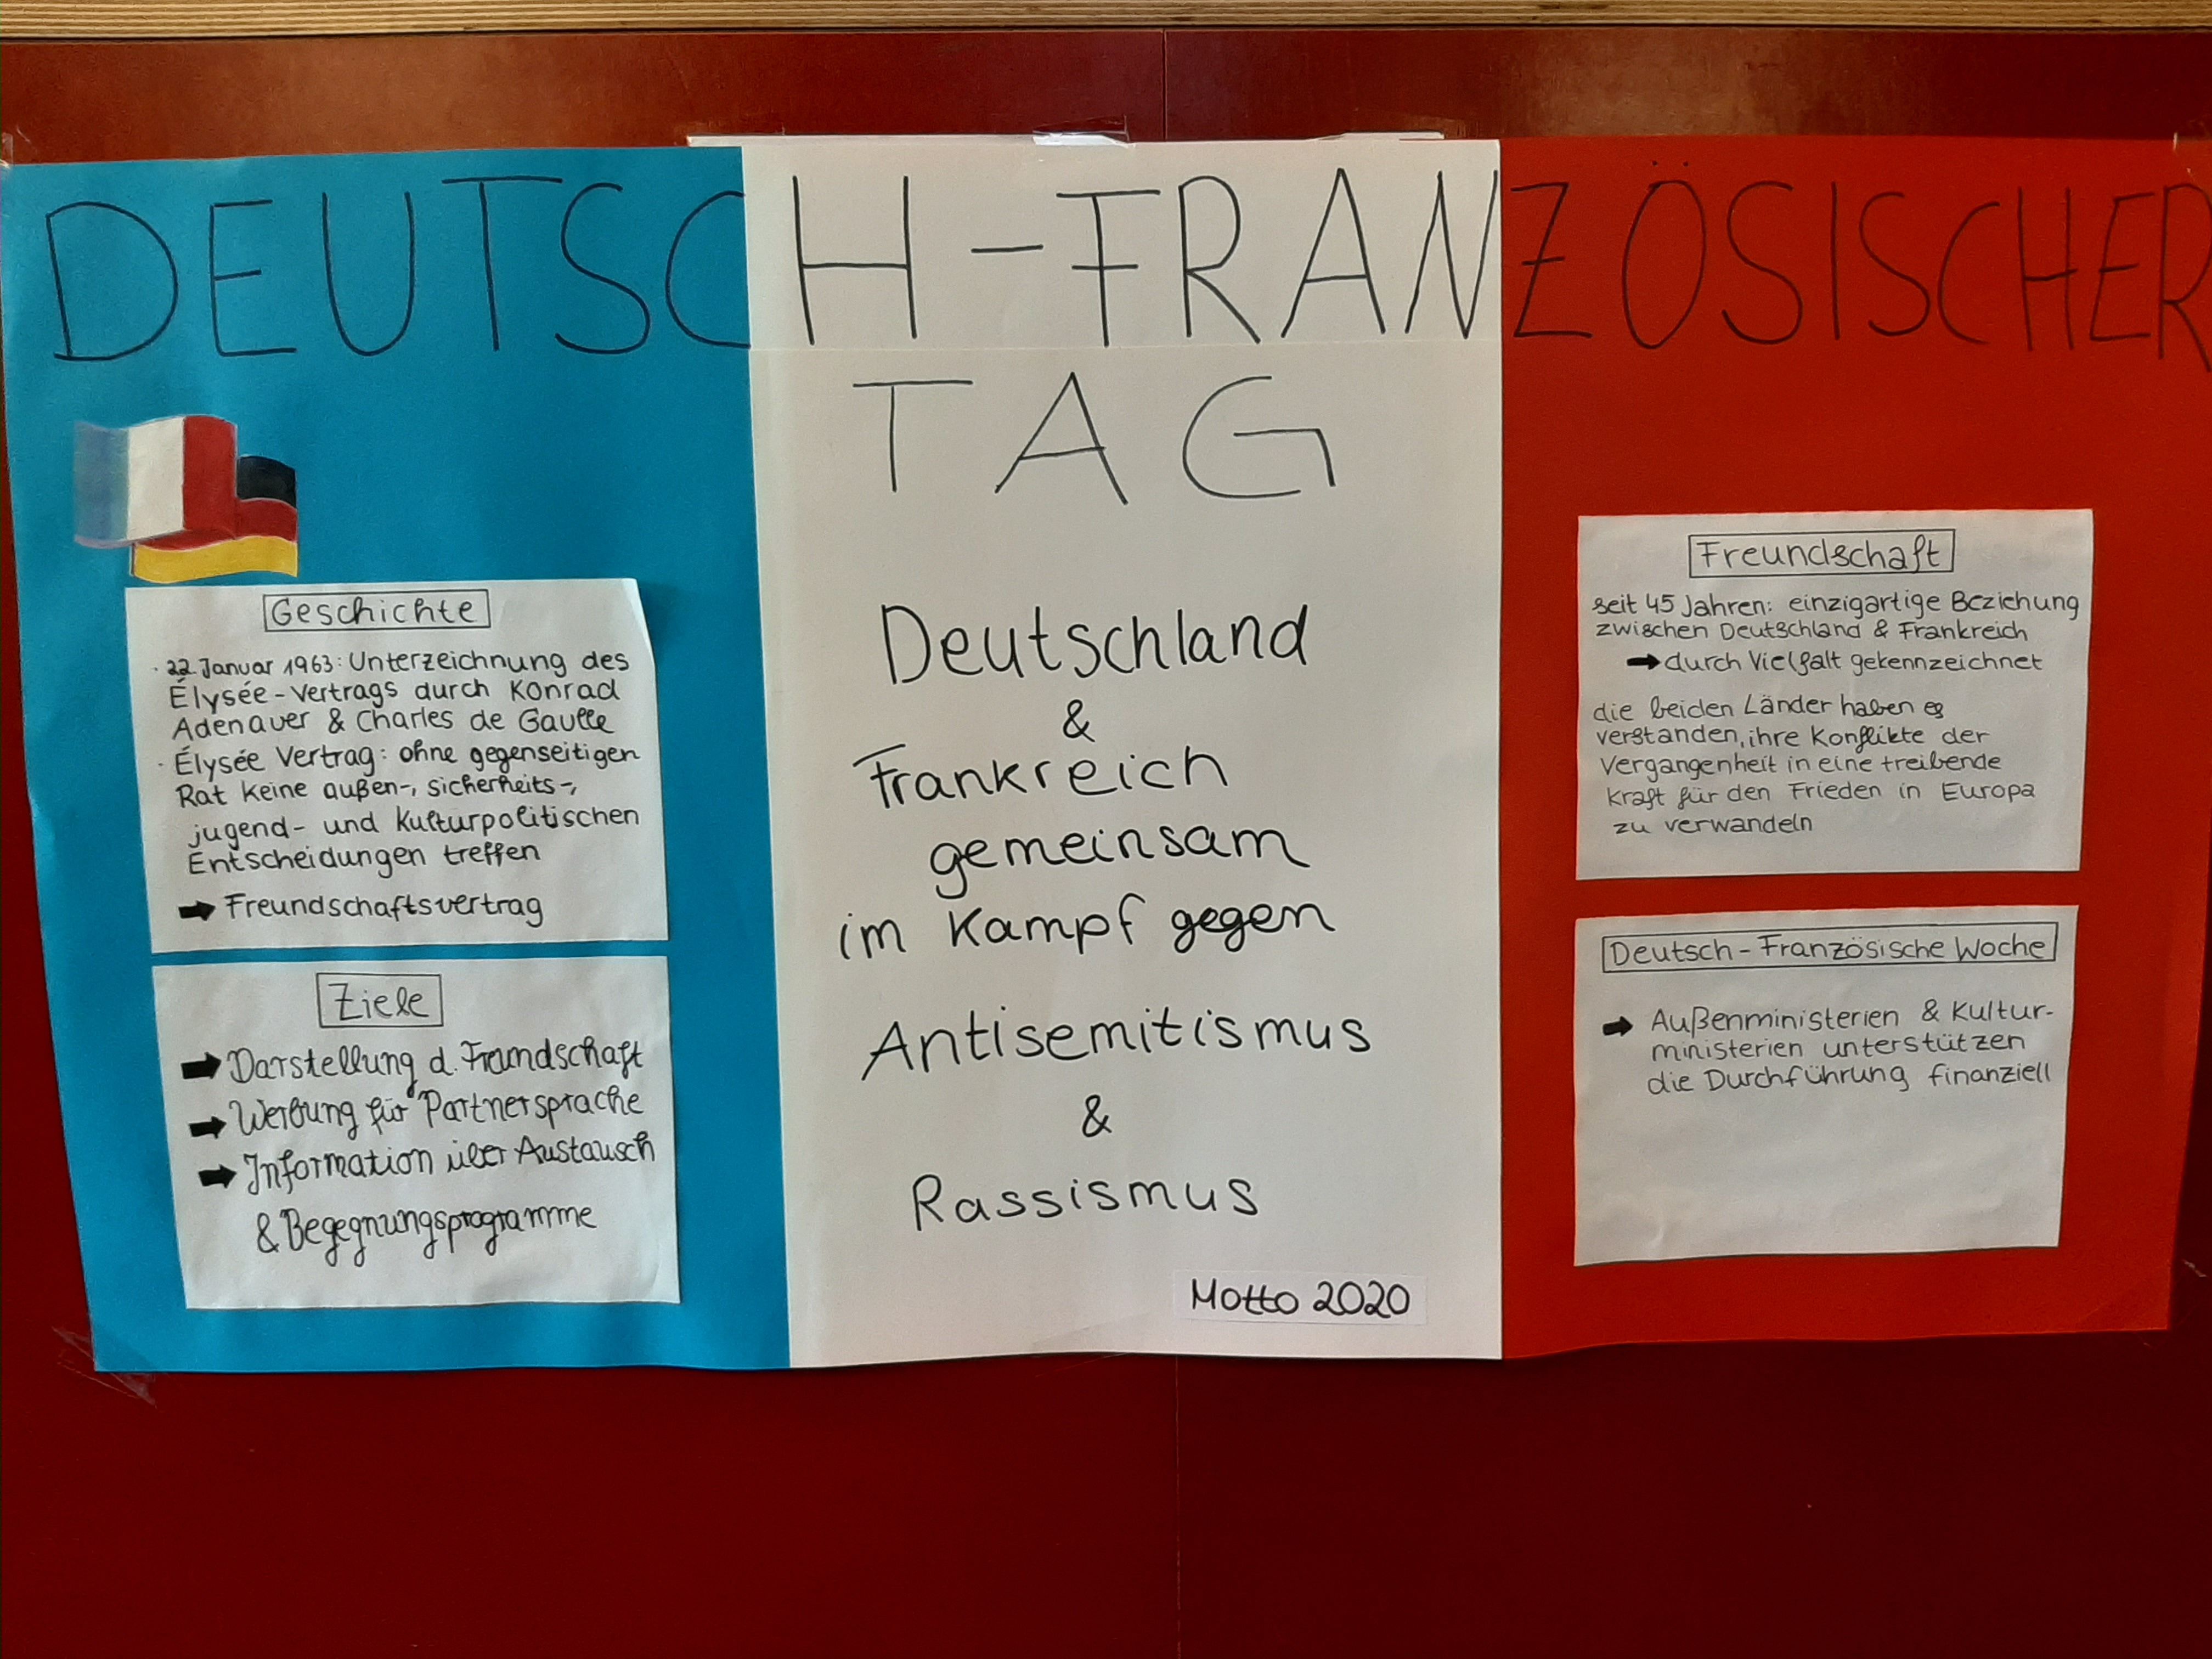 DEUTSCH-FRANZÖSISCHER
TAG
Geschichte
· 22. Januar 1963: Unterzeichnung des
Élysée-Vertrags durch Konrad
Adenauer & Charles de Gaulle
· Élysée Vertrag: ohne gegenseitigen
Rat keine außen-, sicherheits-,
jugend- und kulturpolitischen
Entscheidungen treffen
➡ Freundschaftsvertrag
Ziele
➡ Darstellung d. Freundschaft
➡ Werbung für Partnersprache
➡ Information über Austausch
& Begegnungsprogramme
Deutschland
&
Frankreich
gemeinsam
im Kampf gegen
Antisemitismus
&
Rassismus
Motto 2020
Freundschaft
seit 45 Jahren: einzigartige Beziehung
zwischen Deutschland & Frankreich
➡ durch Vielfalt gekennzeichnet
die beiden Länder haben es
verstanden, ihre Konflikte der
Vergangenheit in eine treibende
Kraft für den Frieden in Europa
zu verwandeln
Deutsch-Französische Woche
➡ Außenministerien & Kultur-
ministerien unterstützen
die Durchführung finanziell